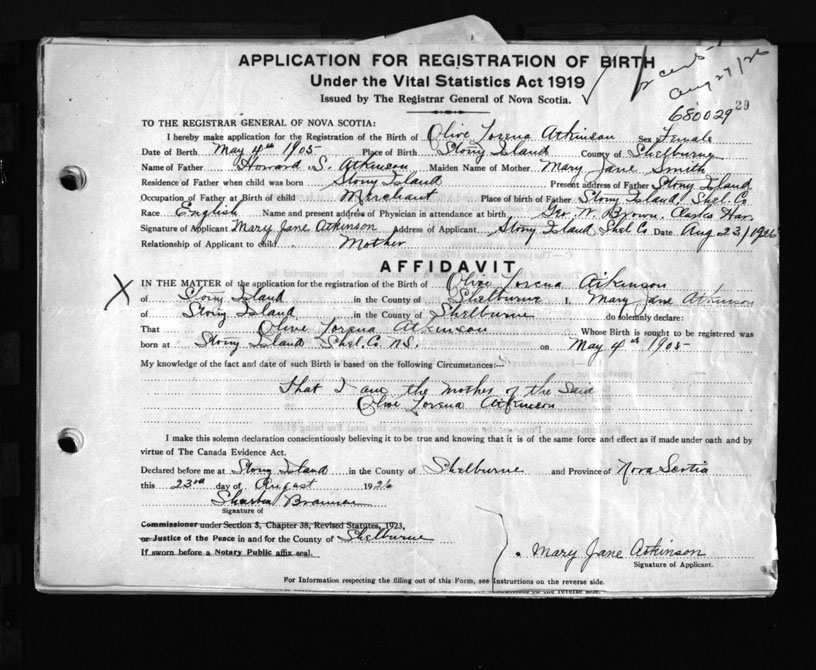 APPLICATION FOR REGISTRATION OF BIRTH
Under the Vital Statistics Act 1919
Issued by The Registrar General of Nova Scotia.
Aug 27/26
680029 29
TO THE REGISTRAR GENERAL OF NOVA SCOTIA:
I hereby make application for the Registration of the Birth of Olive Lorena Atkinson Sex Female
Date of Berth May 4th 1905 Place of Birth Stony Island County of Shelburne
Name of Father Howard S. Atkinson Maiden Name of Mother Mary Jane Smith
Residence of Father when child was born Stony Island Present address of Father Stony Island
Occupation of Father at Birth of child Merchant Place of birth of Father Stony Island, Shel. Co
Race English Name and present address of Physician in attendance at birth Geo. W. Brown. Clarks Har.
Signature of Applicant Mary Jane Atkinson Address of Applicant Stony Island Shel Co. Date Aug 23/1926
Relationship of Applicant to child Mother
AFFIDAVIT
X IN THE MATTER of the application for the registration of the Birth of Olive Lorena Atkinson
of Stony Island in the County of Shelburne I, Mary Jane Atkinson
of Stony Island in the County of Shelburne do solemnly declare:
That Olive Lorena Atkinson Whose Birth is sought to be registered was
born at Stony Island Shel. Co. N.S. on May 4th 1905
My knowledge of the fact and date of such Birth is based on the following Circumstances:
That I am the mother of the said
Olive Lorena Atkinson
I make this solemn declaration conscientiously believing it to be true and knowing that it is of the same force and effect as if made under oath and by
virtue of The Canada Evidence Act.
Declared before me at Stony Island in the County of Shelburne and Province of Nova Scotia
this 23rd day of August 1926
Signature of
Commissioner under Section 3, Chapter 38, Revised Statutes, 1923,
or Justice of the Peace in and for the County of Shelburne
If sworn before a Notary Public affix seal.
Mary Jane Atkinson
Signature of Applicant.
For Information respecting the filling out of this Form, see Instructions on the reverse side.